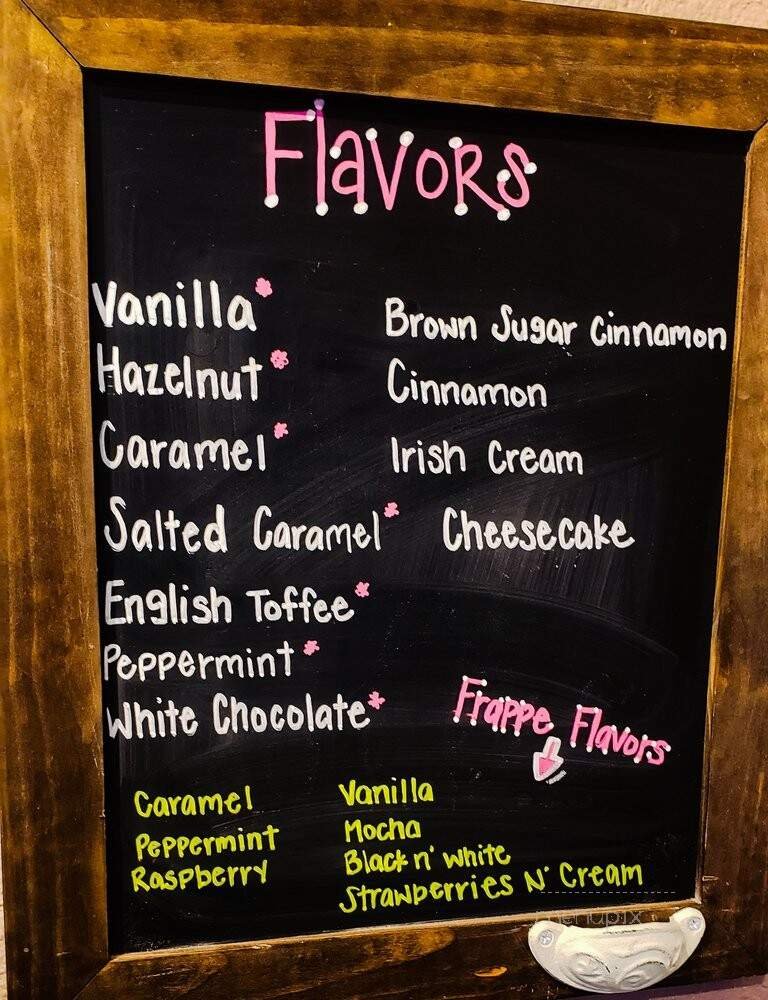 Flavors
Vanilla*
Hazelnut*
Caramel*
Salted Caramel*
English Toffee*
Peppermint*
White Chocolate*
Brown Sugar Cinnamon
Cinnamon
Irish Cream
Cheesecake
Frappe Flavors
Caramel
Peppermint
Raspberry
Vanilla
Mocha
Black n' White
Strawberries N' Cream
menupix